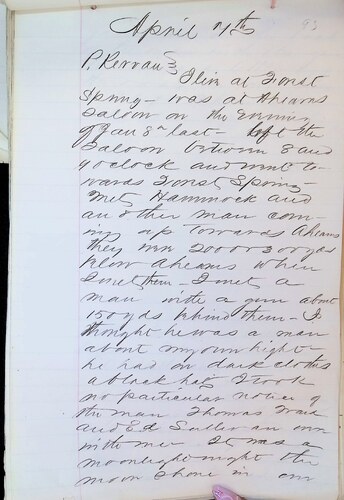 April 4th
P. Kervau
I live at Forest
Spring - was at Ahearns
Saloon on the Evening
of Jan 3rd last - left the
Saloon between 8 and
9 oclock and went to-
wards Forest Spring -
Met Hammock and
another man com-
ing up towards Ahearns
they were 200 or 300 yds
below Ahearns when
I met them - I met a
man with a gun about
150 yds behind them - I
thought he was a man
about my own hight -
he had on dark clothes
a black hat I took
no particular notice of
the man Thomas
and Ed were
with me - It was a
moonlight night the
moon shone in our